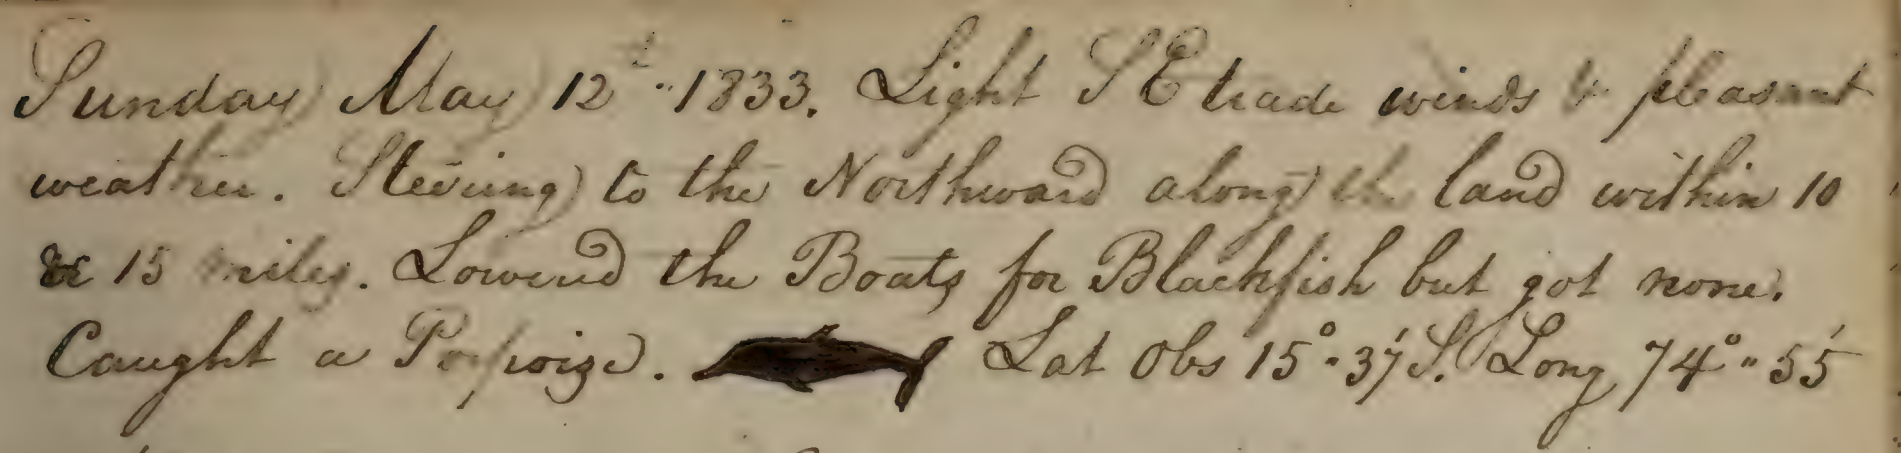 Sunday May 12th 1833. Light S E trade winds & pleasant
weather. Steering to the Northward along the land within 10
or 15 miles. Lowered the Boats for Blackfish but got none.
Caught a Porpoize. Lat Obs 15°" 37' S. Long 74°" 55'